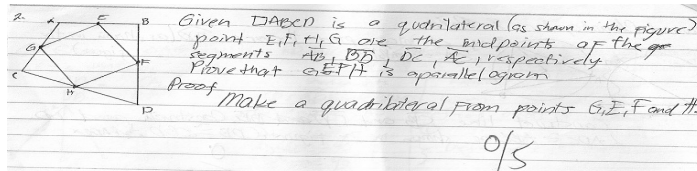 2.
A E B
G
C F
H
D
Given □ABCD is a qudrilateral (as shown in the figure)
point E, F, H, G are the midpoints of the
segments AB, BD, DC, AC, respectively
Prove that GEFH is aparallelogram
Proof
Make a quadrilateral from points G, E, F and H.
0/5